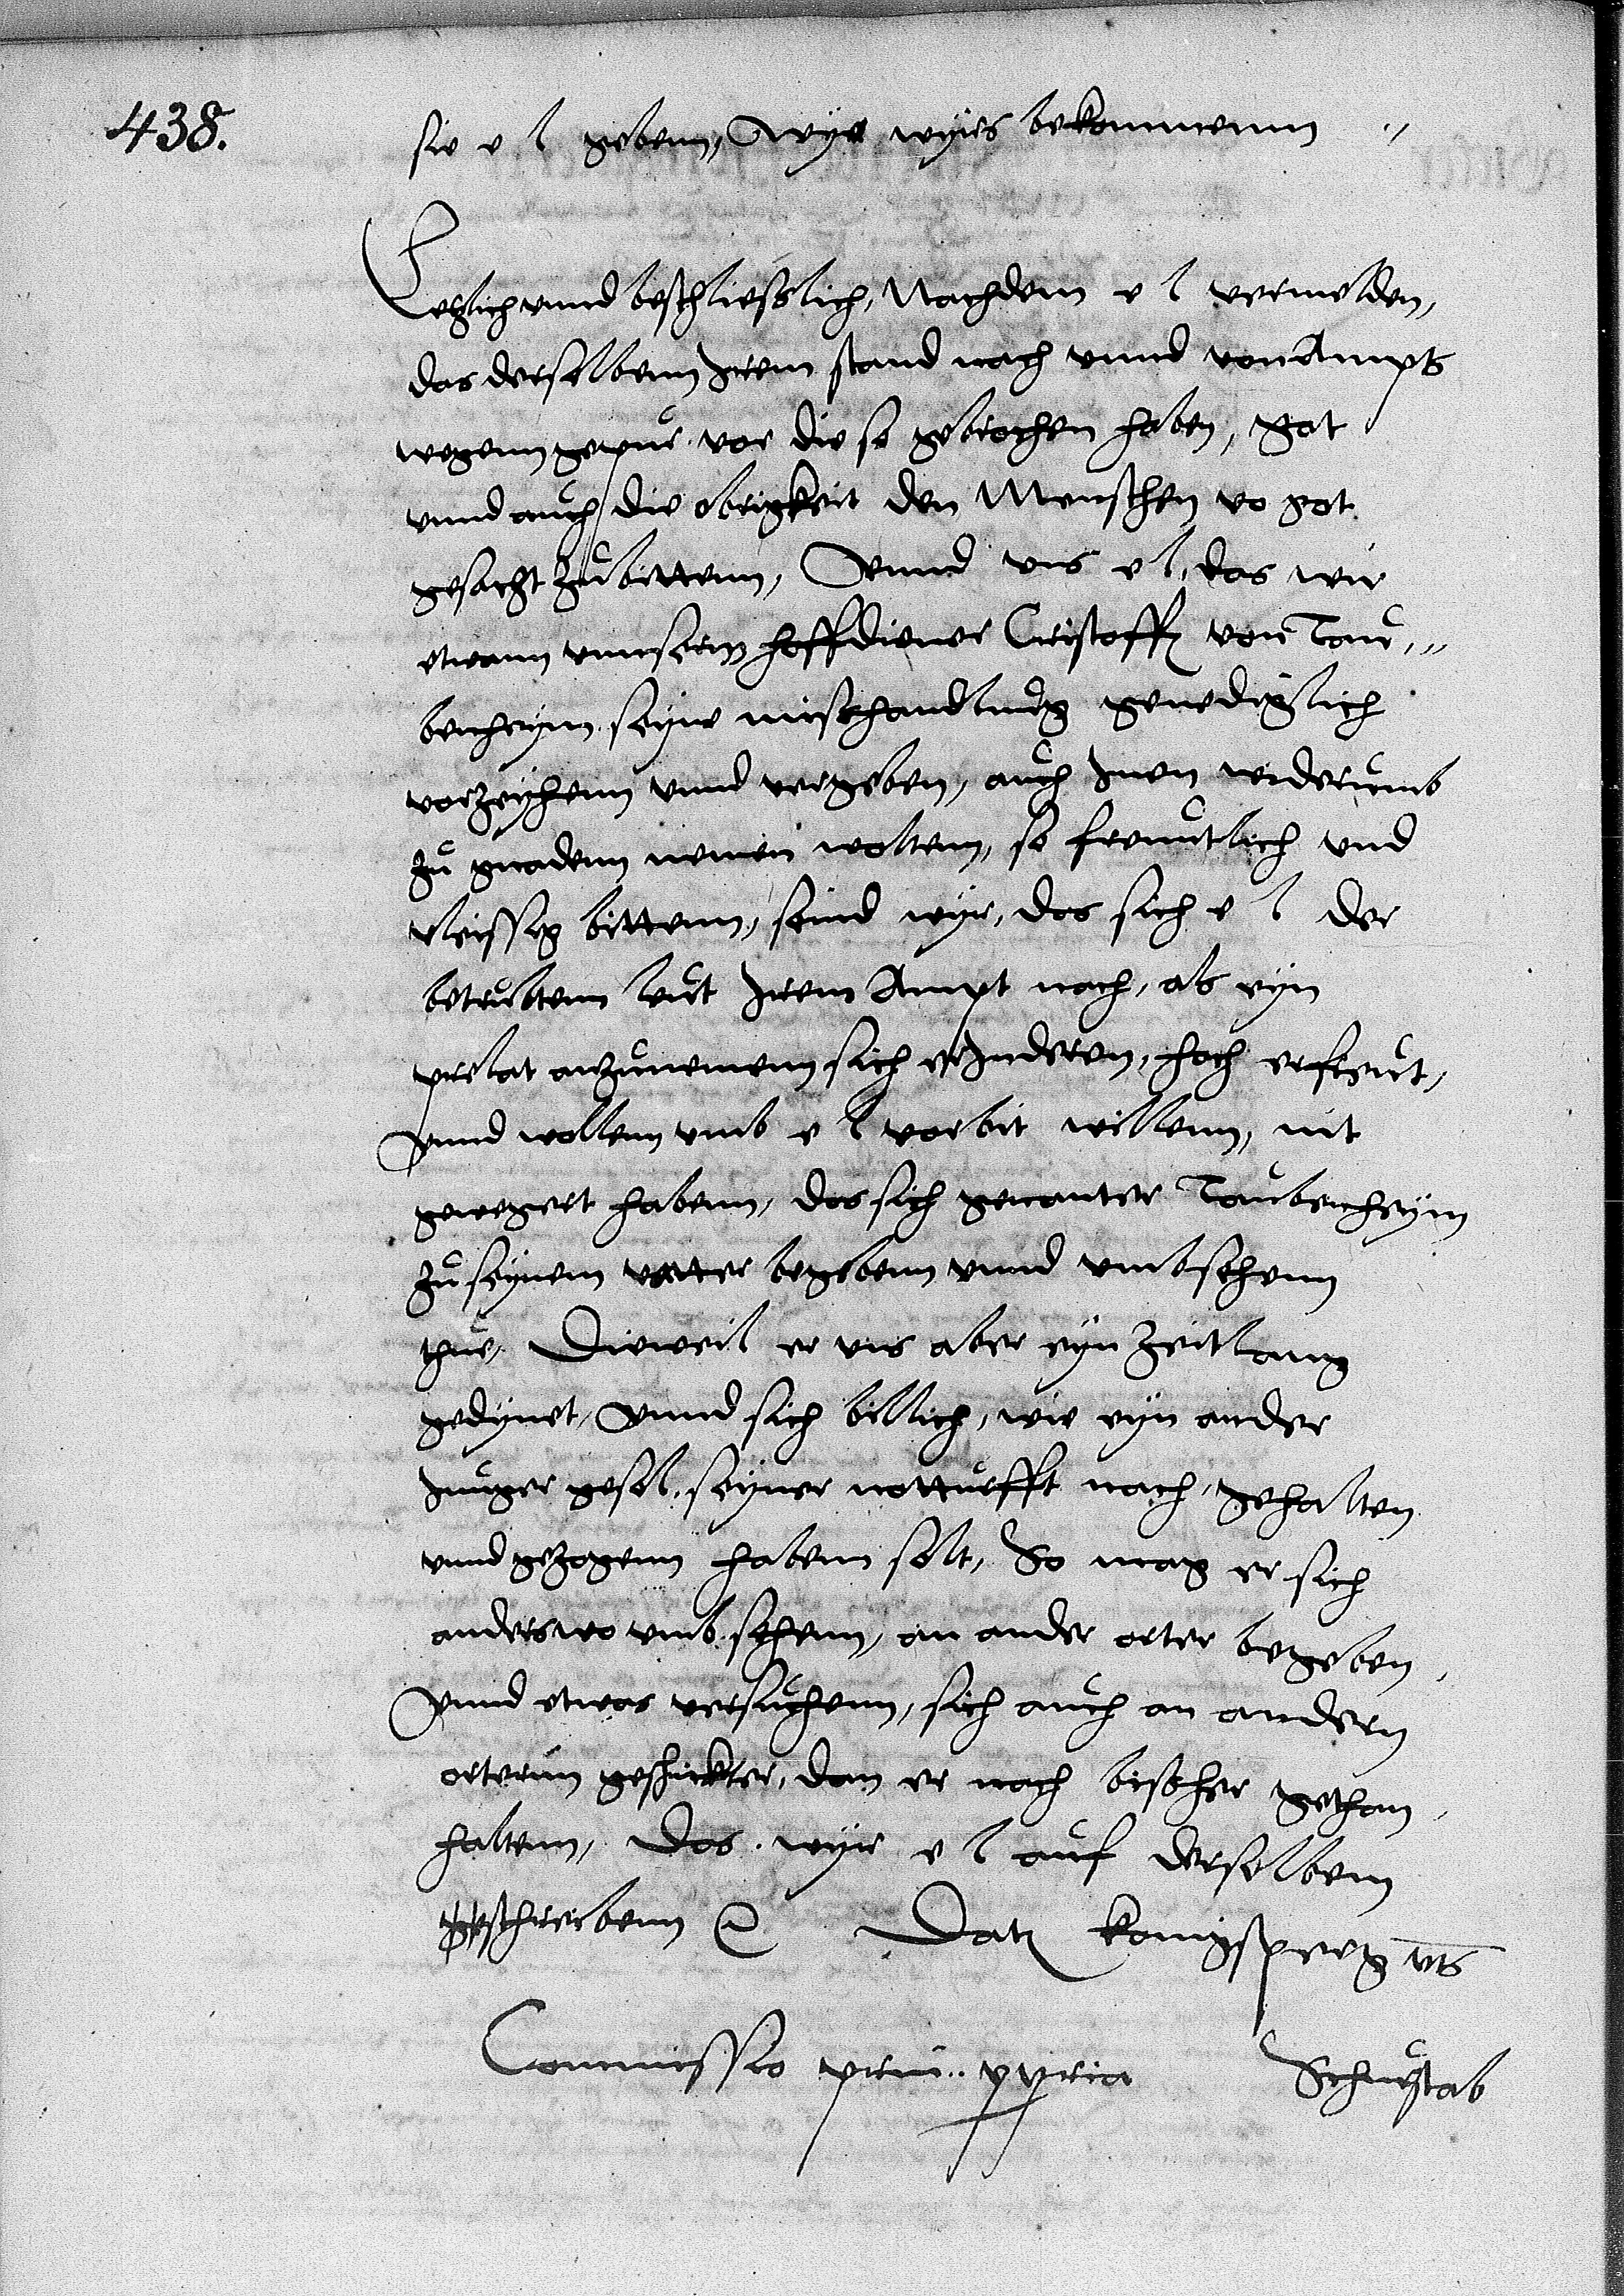 438.
sie e l gebenn, Wye wyrs bekommenn
Letzlich vnnd beschließlich, Nachdem e l vermelden,
das derselbenn Irem stand nach vnnd von Ampts
wegenn gepur vor die so gebrochen haben, got
vnnd auch die obrigkeit den Menschen vo got
gesatzt zubittenn, Vnnd vns e l, das wir
etwann vnnserm hoffdiener Cristoff von Tau,,
benheym seyne mißhandlung genediglich
vorzeyhenn vnnd vergeben, auch Inen widerumb
zu gnadenn nemen woltenn, so freuntlich vnd
vleissig bittenn, seind wyr, das sich e l der
betrubtenn leut Irem Ampt nach, als eyn
prelat anzunemenn sich erInderen, hoch erfreut,
Vnnd wollenn vmb e l vorbit willenn, nit
gewegert habenn, das sich genanter Taubenheym
zu seynem vatter begebenn vnnd vmbsehenn
thue, Dieweil er vns aber eyn Zeitlang
gedynet, Vnnd sich billich, wie eyn ander
Junger gesel, seyner notturfft nach, gehalten
vnnd gezogenn habenn solt, So mag er sich
anderswo vmb sehenn, an ander orter begeben,
Vnnd etwas versuchenn, sich auch an andern
orternn geschickter, dan er noch bißher gethan,
haltenn, Das wyr e l auf derselbenn
schreibenn Dat Konigsperg vts
Commissio prin.. ppria Schustab